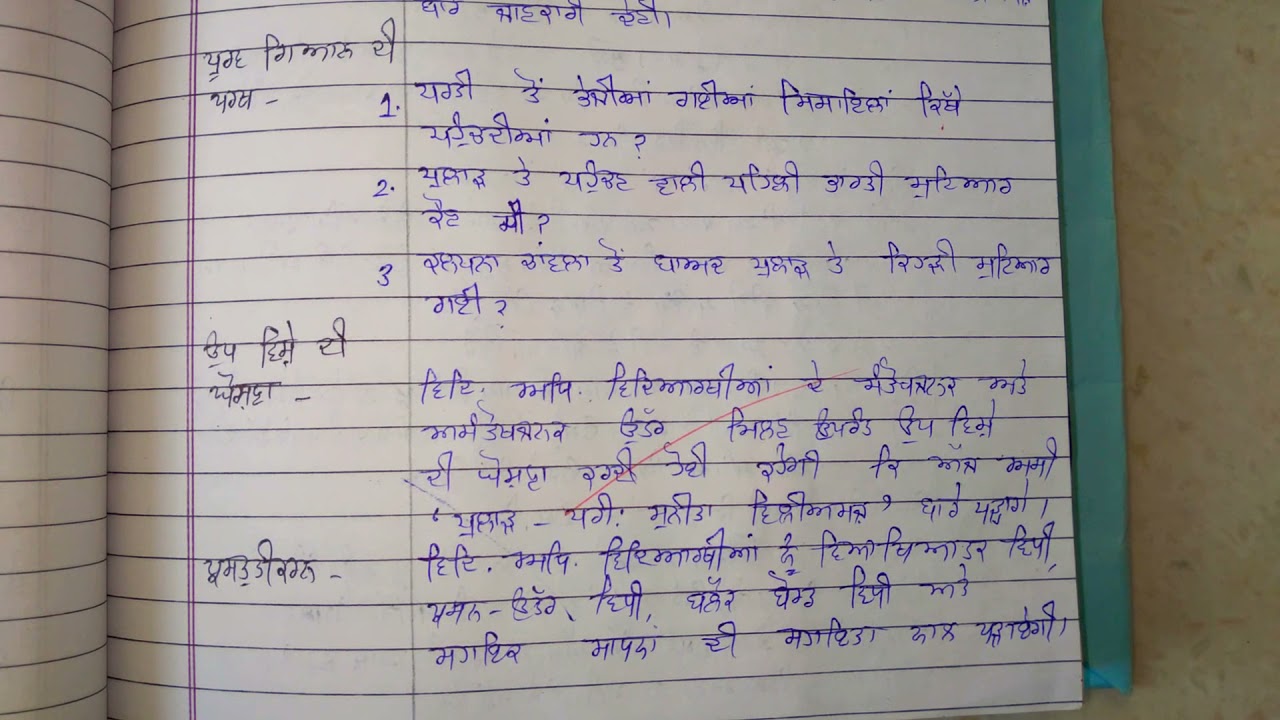 ਬਾਰੇ ਜਾਣਕਾਰੀ ਦੇਣੀ।
ਪੂਰਵ ਗਿਆਨ ਦੀ
ਪਰਖ - 1. ਧਰਤੀ ਤੋਂ ਭੇਜੀਆਂ ਗਈਆਂ ਮਿਸਾਇਲਾਂ ਕਿੱਥੇ
ਪਹੁੰਚਦੀਆਂ ਹਨ ?
2. ਪੁਲਾੜ ਤੇ ਪਹੁੰਚਣ ਵਾਲੀ ਪਹਿਲੀ ਭਾਰਤੀ ਮੁਟਿਆਰ
ਕੌਣ ਸੀ ?
3 ਕਲਪਨਾ ਚਾਵਲਾ ਤੋਂ ਬਾਅਦ ਪੁਲਾੜ ਤੇ ਕਿਹੜੀ ਮੁਟਿਆਰ
ਗਈ ?
ਉਪ ਵਿਸ਼ੇ ਦੀ
ਘੋਸ਼ਣਾ - ਵਿਦਿ. ਅਧਿ. ਵਿਦਿਆਰਥੀਆਂ ਦੇ ਸੰਤੋਖਜਨਕ ਅਤੇ
ਅਸੰਤੋਖਜਨਕ ਉੱਤਰ ਮਿਲਣ ਉਪਰੰਤ ਉਪ ਵਿਸ਼ੇ
ਦੀ ਘੋਸ਼ਣਾ ਕਰਦੀ ਹੋਈ ਕਹੇਗੀ ਕਿ ਅੱਜ ਅਸੀ
'ਪੁਲਾੜ - ਪਰੀ: ਸੁਨੀਤਾ ਵਿਲੀਅਮਜ਼' ਬਾਰੇ ਪੜ੍ਹਾਂਗੇ।
ਪ੍ਰਸਤੁਤੀਕਰਨ - ਵਿਦਿ. ਅਧਿ. ਵਿਦਿਆਰਥੀਆਂ ਨੂੰ ਵਿਆਖਿਆਤਰ ਵਿਧੀ,
ਪ੍ਰਸ਼ਨ - ਉੱਤਰ, ਵਿਧੀ, ਬਲੈਕ ਬੋਰਡ ਵਿਧੀ ਅਤੇ
ਸਹਾਇਕ ਸਾਧਨਾਂ ਦੀ ਸਹਾਇਤਾ ਨਾਲ ਪੜ੍ਹਾਏਗੀ।